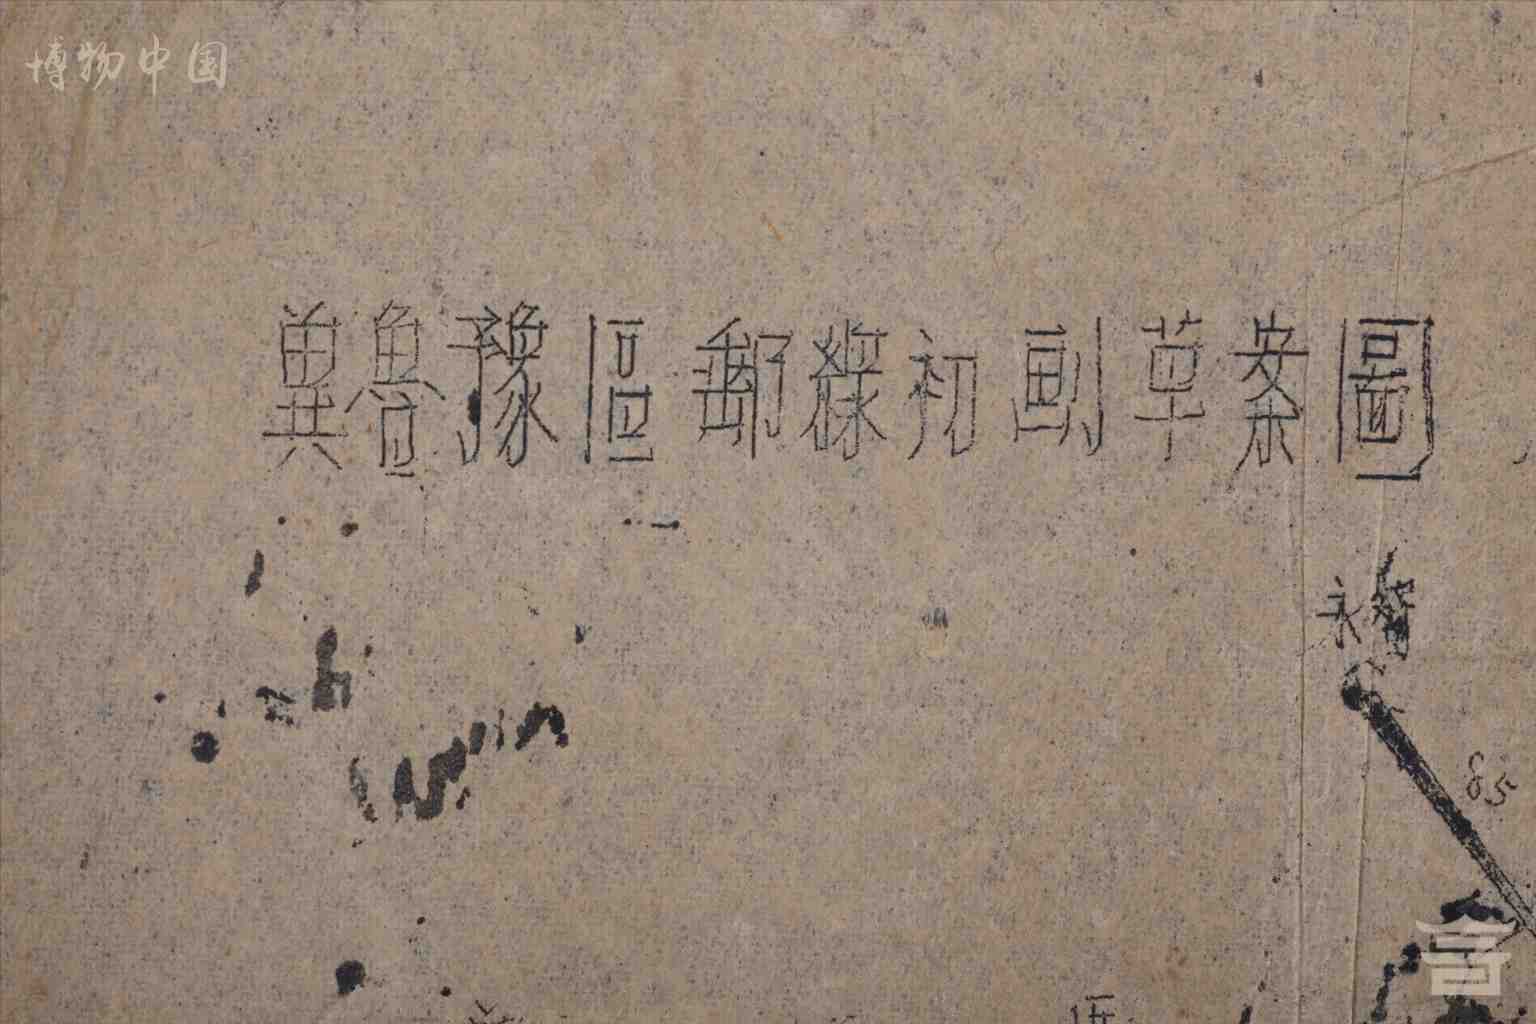 博物中国
冀魯豫區郵線初劃草案圖
永智
85